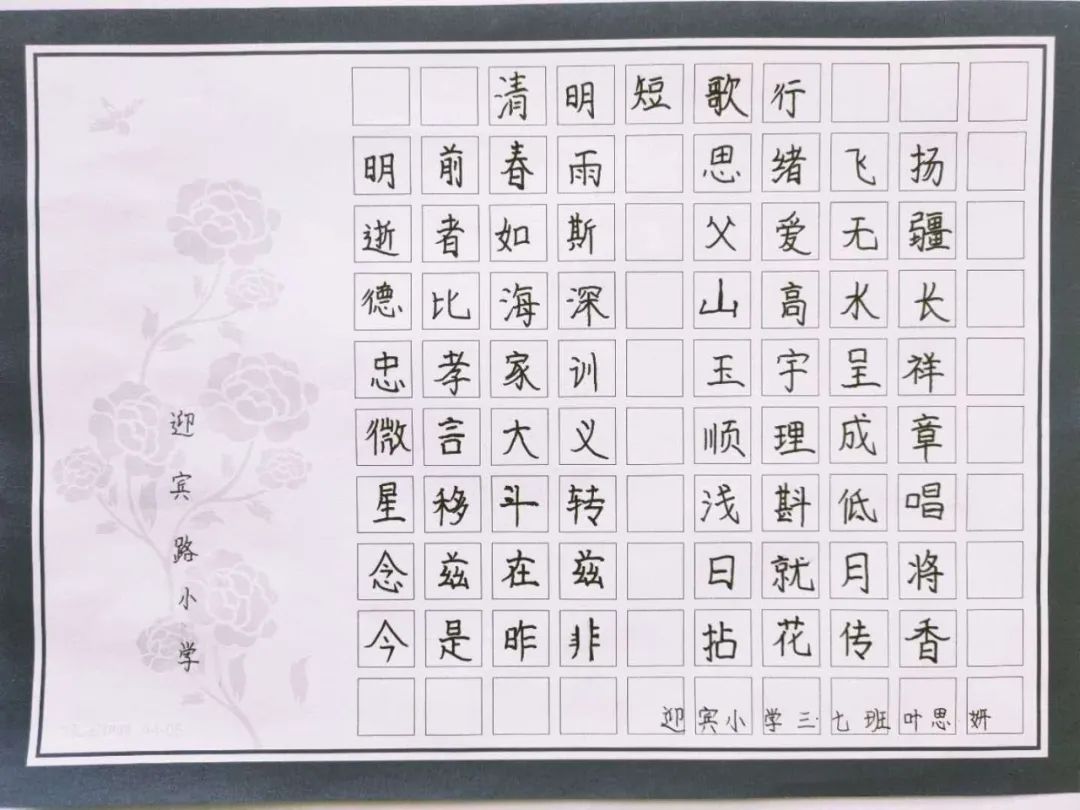 清明短歌行
明前春雨 思绪飞扬
逝者如斯 父爱无疆
德比海深 山高水长
忠孝家训 玉宇呈祥
微言大义 顺理成章
星移斗转 浅斟低唱
念兹在兹 日就月将
今是昨非 拈花传香
迎宾小学三七班叶思妍
迎宾路小学